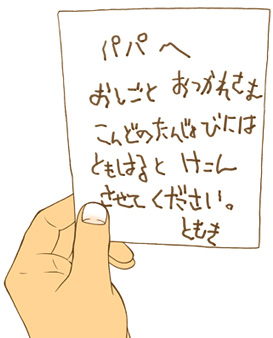 パパへ
おしごと おつかれさま
こんどのたんじょびには
ともはると けこん
させてください。
ともき